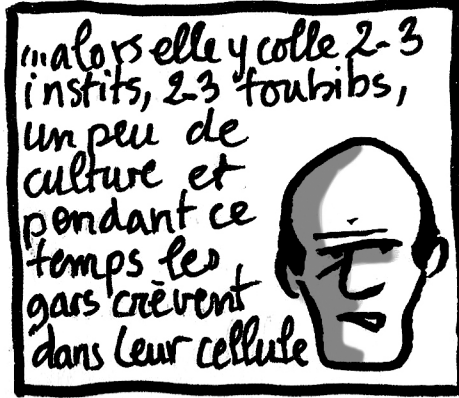 ...alors elle y colle 2-3
instits, 2-3 toubibs,
un peu de
culture et
pendant ce
temps les
gars crèvent
dans leur cellule